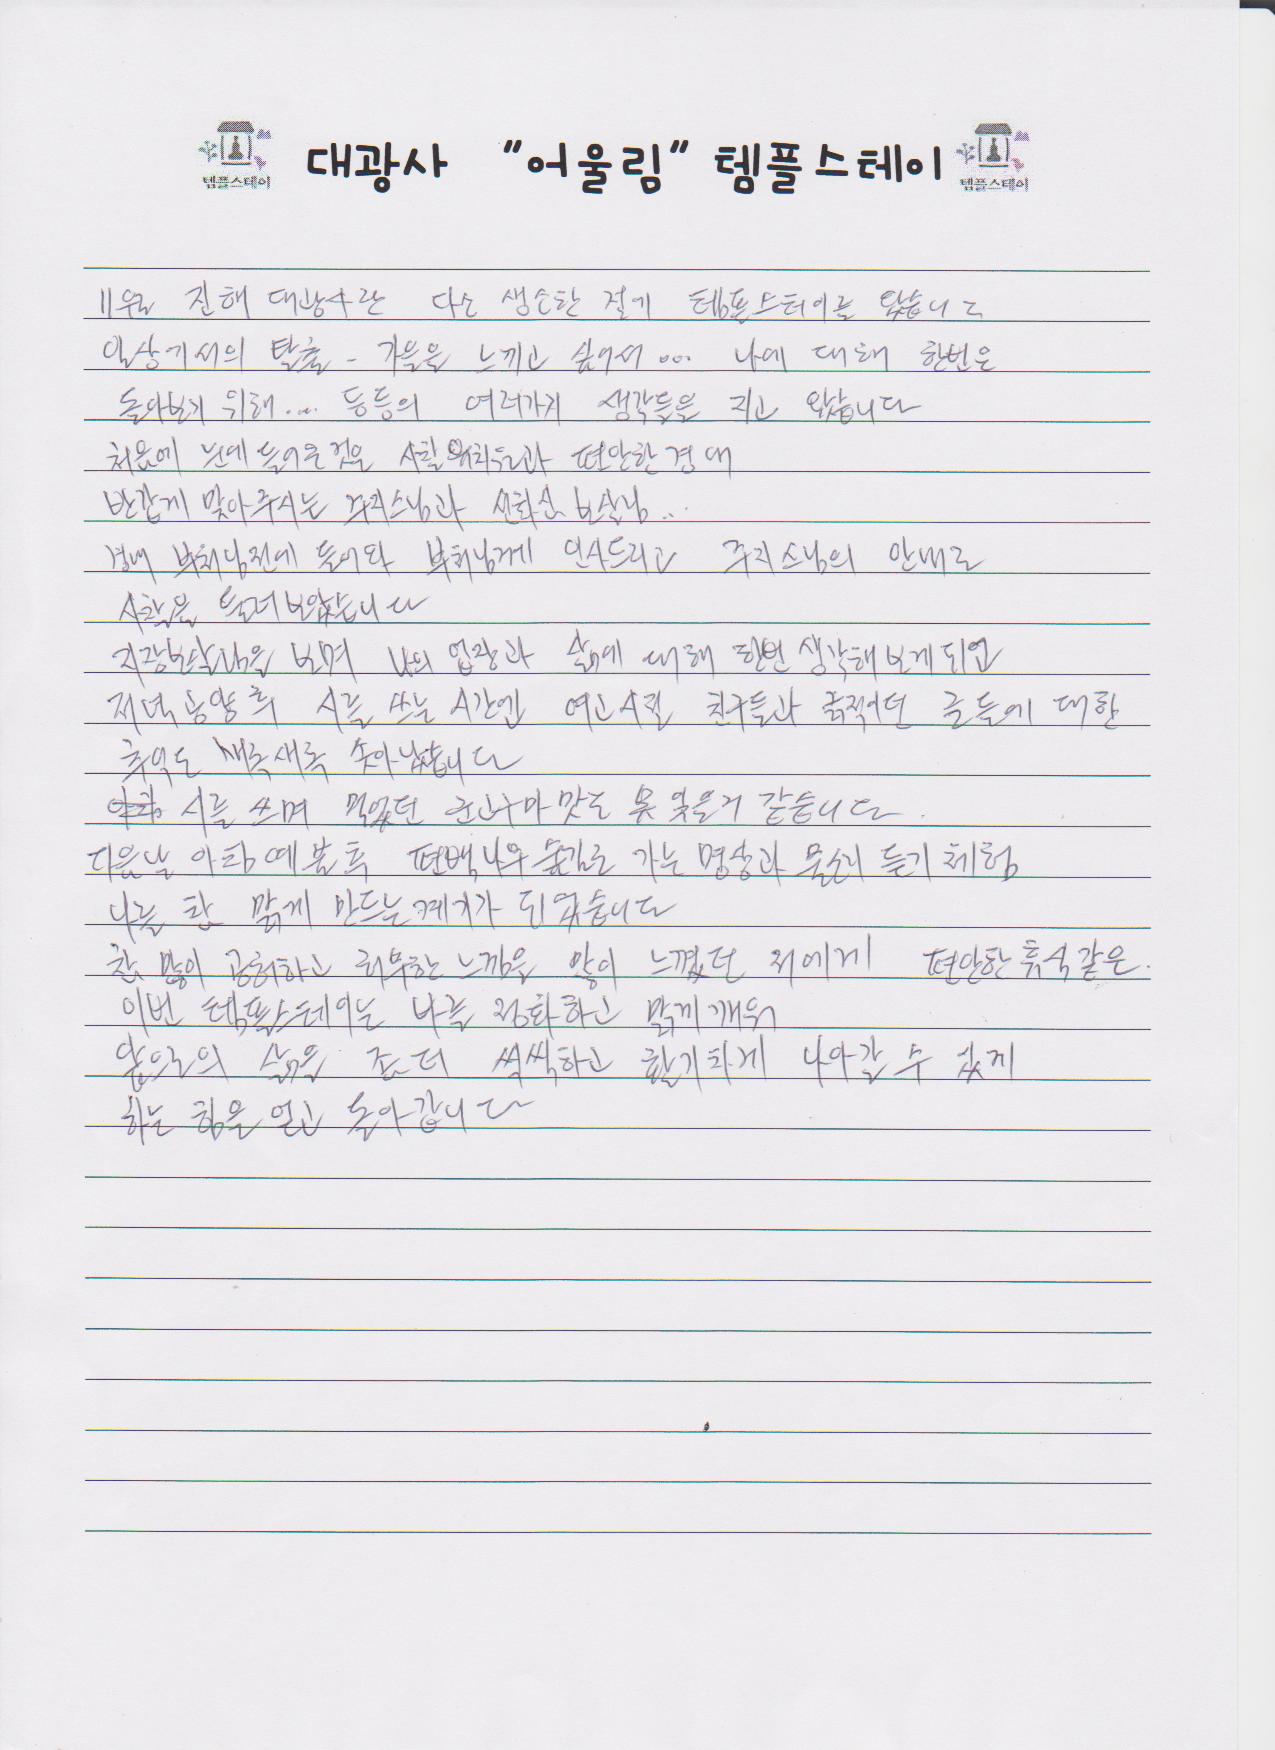 템플스테이 대광사 "어울림" 템플스테이 템플스테이
11월 진해 대광사란 다소 생소한 절에 템플스테이를 왔습니다
일상에서의 탈출 - 가을을 느끼고 싶어서... 나에 대해 한번은
돌아보기 위해.... 등등의 여러가지 생각들을 지고 왔습니다
처음에 눈에 들어온것은 사찰 편안한경내
반갑게 맞아주시는 주지스님과 보살님...
경내 부처님전에 들어와 부처님께 인사드리고 주지스님의 안내로
사찰을 둘러보았습니다
지장보살님을 보며 나의 업장과 삶에 대해 한번 생각해보게되었
저녁공양후 시를 쓰는 시간엔 여고시절 친구들과 끍적이던 글들에 대한
추억도 새록새록 솟아났습니다
시를 쓰며 먹었던 군고구마 맛도 못 잊을거 같습니다.
다음날 아침예불후 편백나무 숲길로 가는 명상과 물소리 듣기 체험
나를 참 맑게 만드는 계기가 되었습니다
참 많이 공허하고 허무한 느낌을 많이 느꼈던 저에게 편안한휴식같은.
이번 템플스테이는 나를 정화하고 맑게깨워
앞으로의 삶을 좀더 씩씩하고 활기차게 나아갈 수 있게
하는 힘을 얻고 돌아갑니다